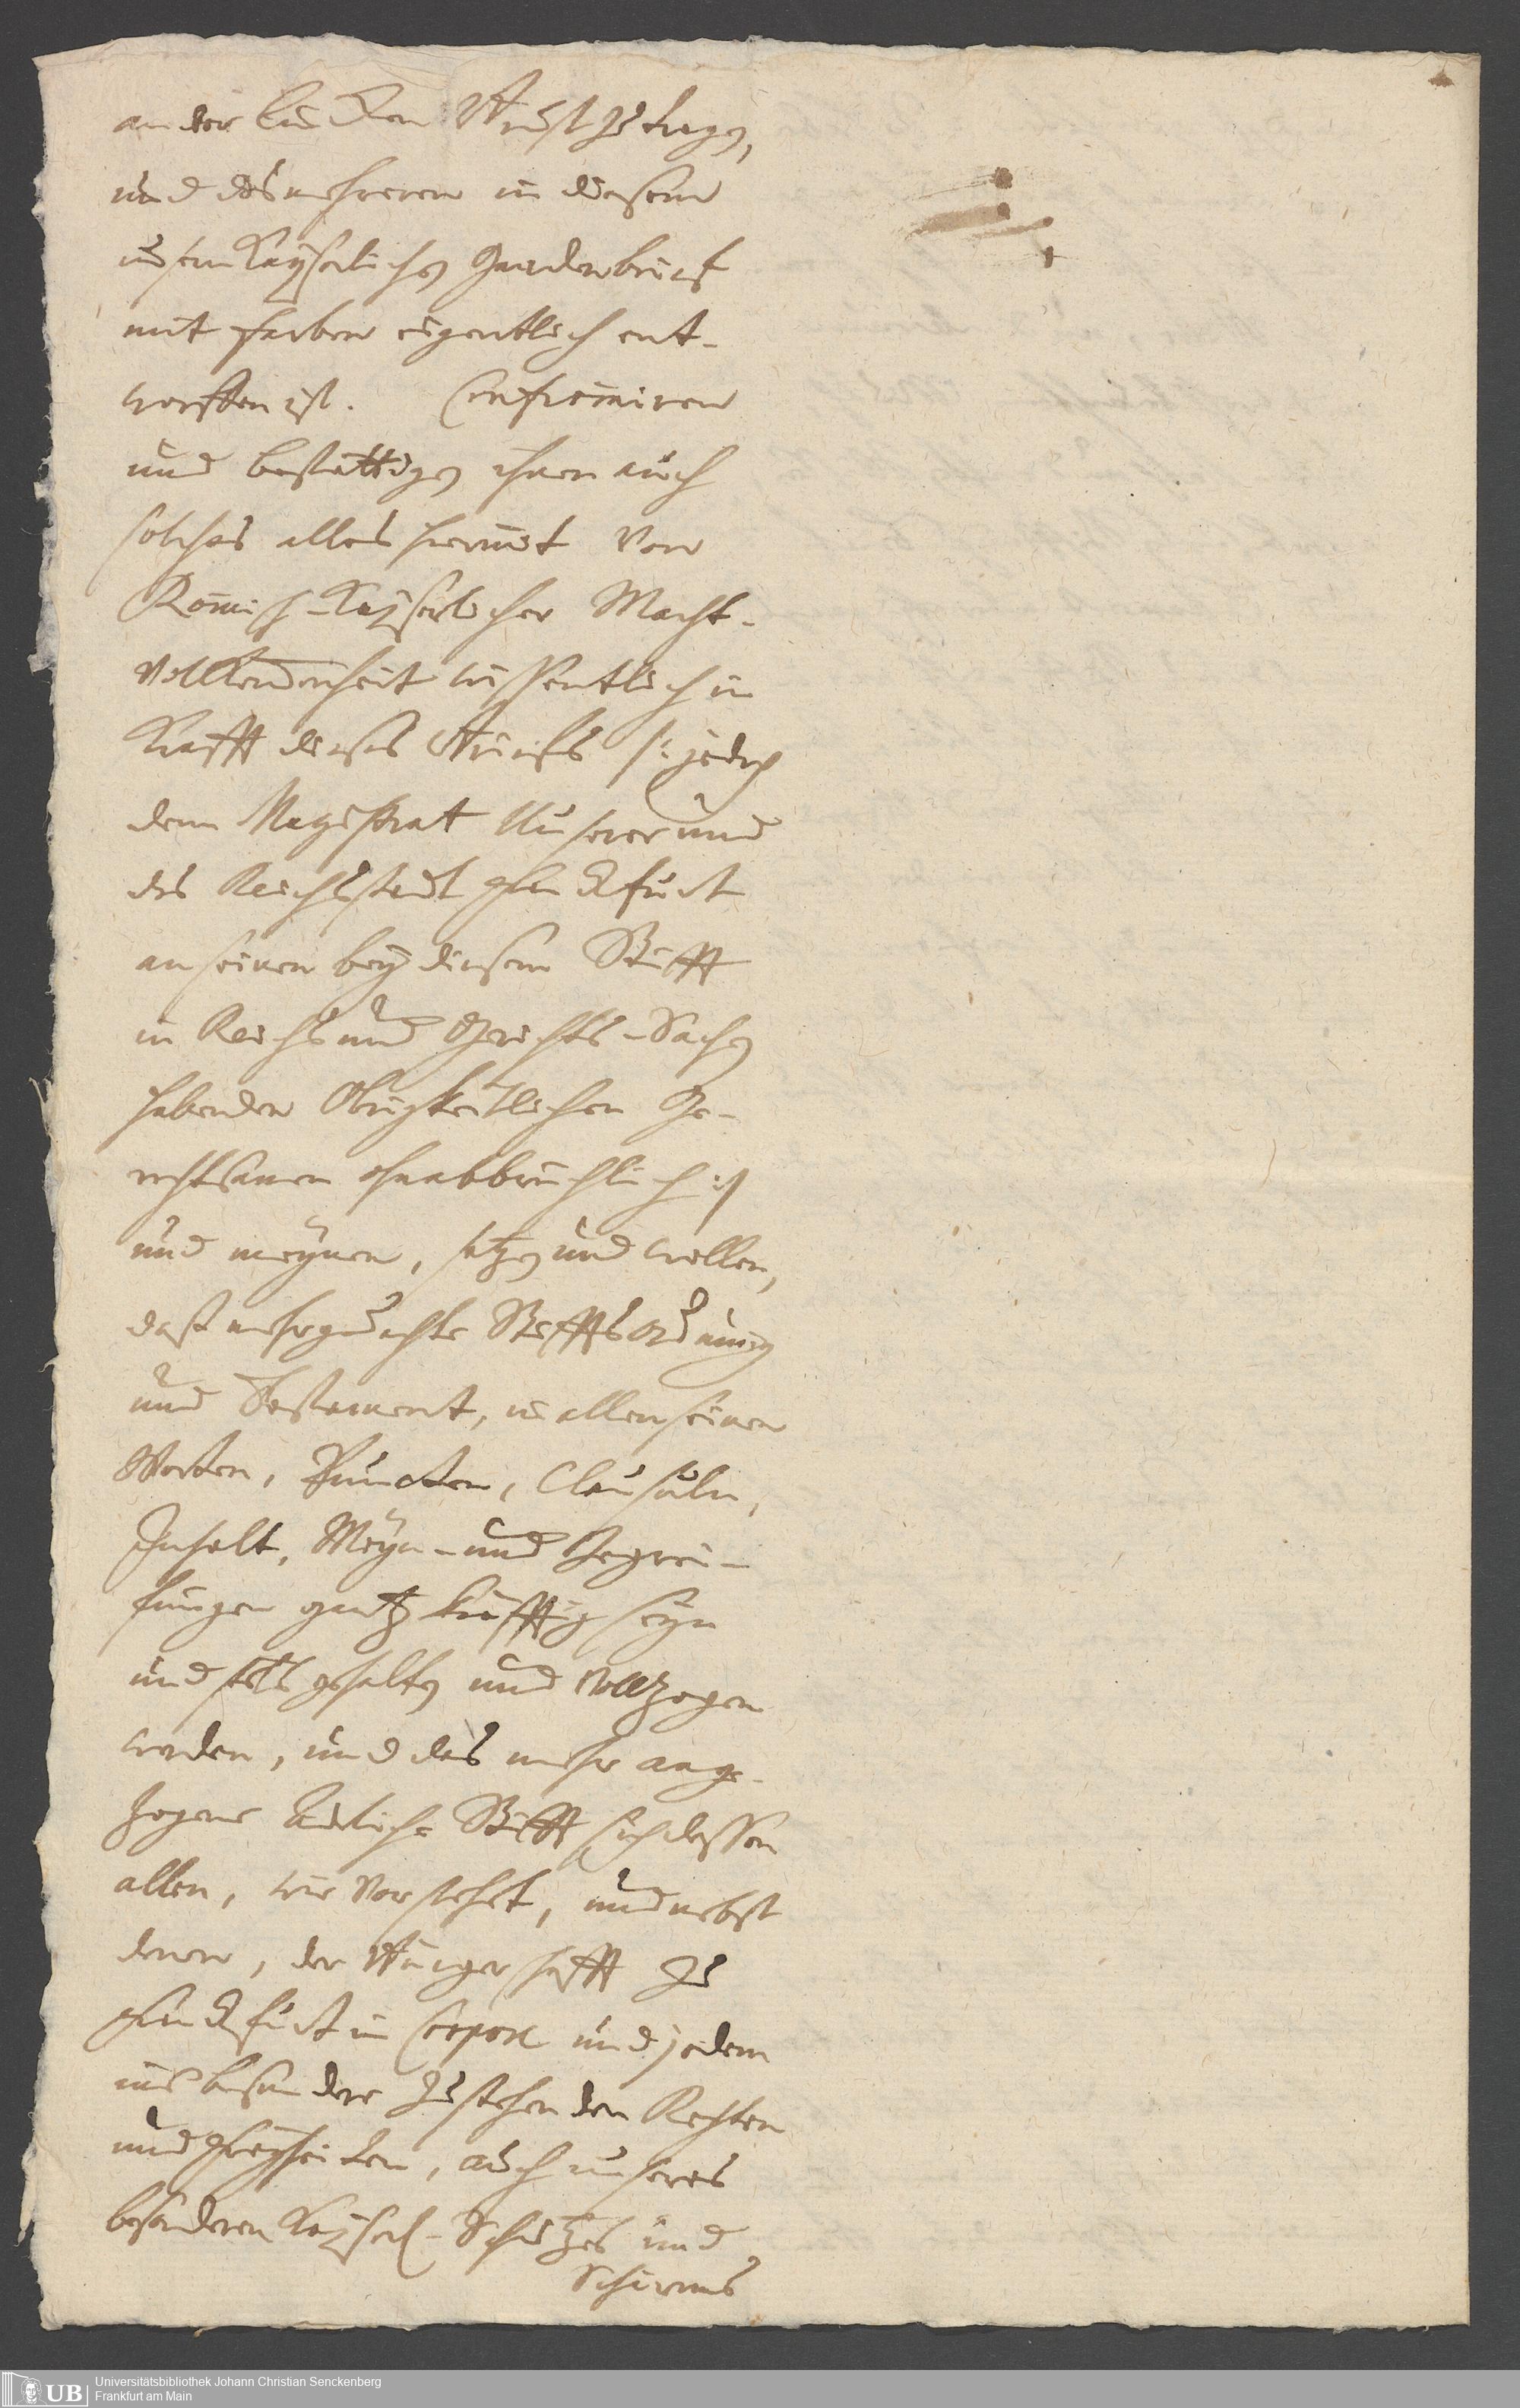 an der lincken Brust zu tragen,
und des mehreren in diesem
unsern Kayserlichen Gnadenbrieff
mit Farben eigentlich ent-
worffen ist. Confirmiren
und bestättigen ihnen auch
solches alles hiermit von
Römisch-Kayserlicher Macht-
Vollkommenheit wissentlich in
Krafft dieses Brieffs /: jedoch
dem Magistrat Unserer und
des Reichsstadt Franckfurt
an seinen bey diesem Stifft
in Reichs und Gerichts-Sachen
habenden Obrigkeitlichen Ge-
rechtsamen ohnabbrüchlich :/
und meynen, setzen und wollen,
daß mehrgedachte Stifftsordnung
und Testament, in allen seinen
Worten, Puncten, Clausuln,
Inhalt, Meyn- und Begrei-
fungen gantz kräfftig seyn
und stets gehalten und vollzogen
werden, und das mehr ange-
zogene Adeliche Stifft sich dessen
allen, wie vorstehet, und nebst
denen, der Bürgerschafft zu
Franckfurt in Corpore und jedem
ins besondere zustehenden Rechten
und Freyheiten, auch unseres
besonderen Kayserl- Schutzes und
Schirms
UB
Universitätsbibliothek Johann Christian Senckenberg
Frankfurt am Main